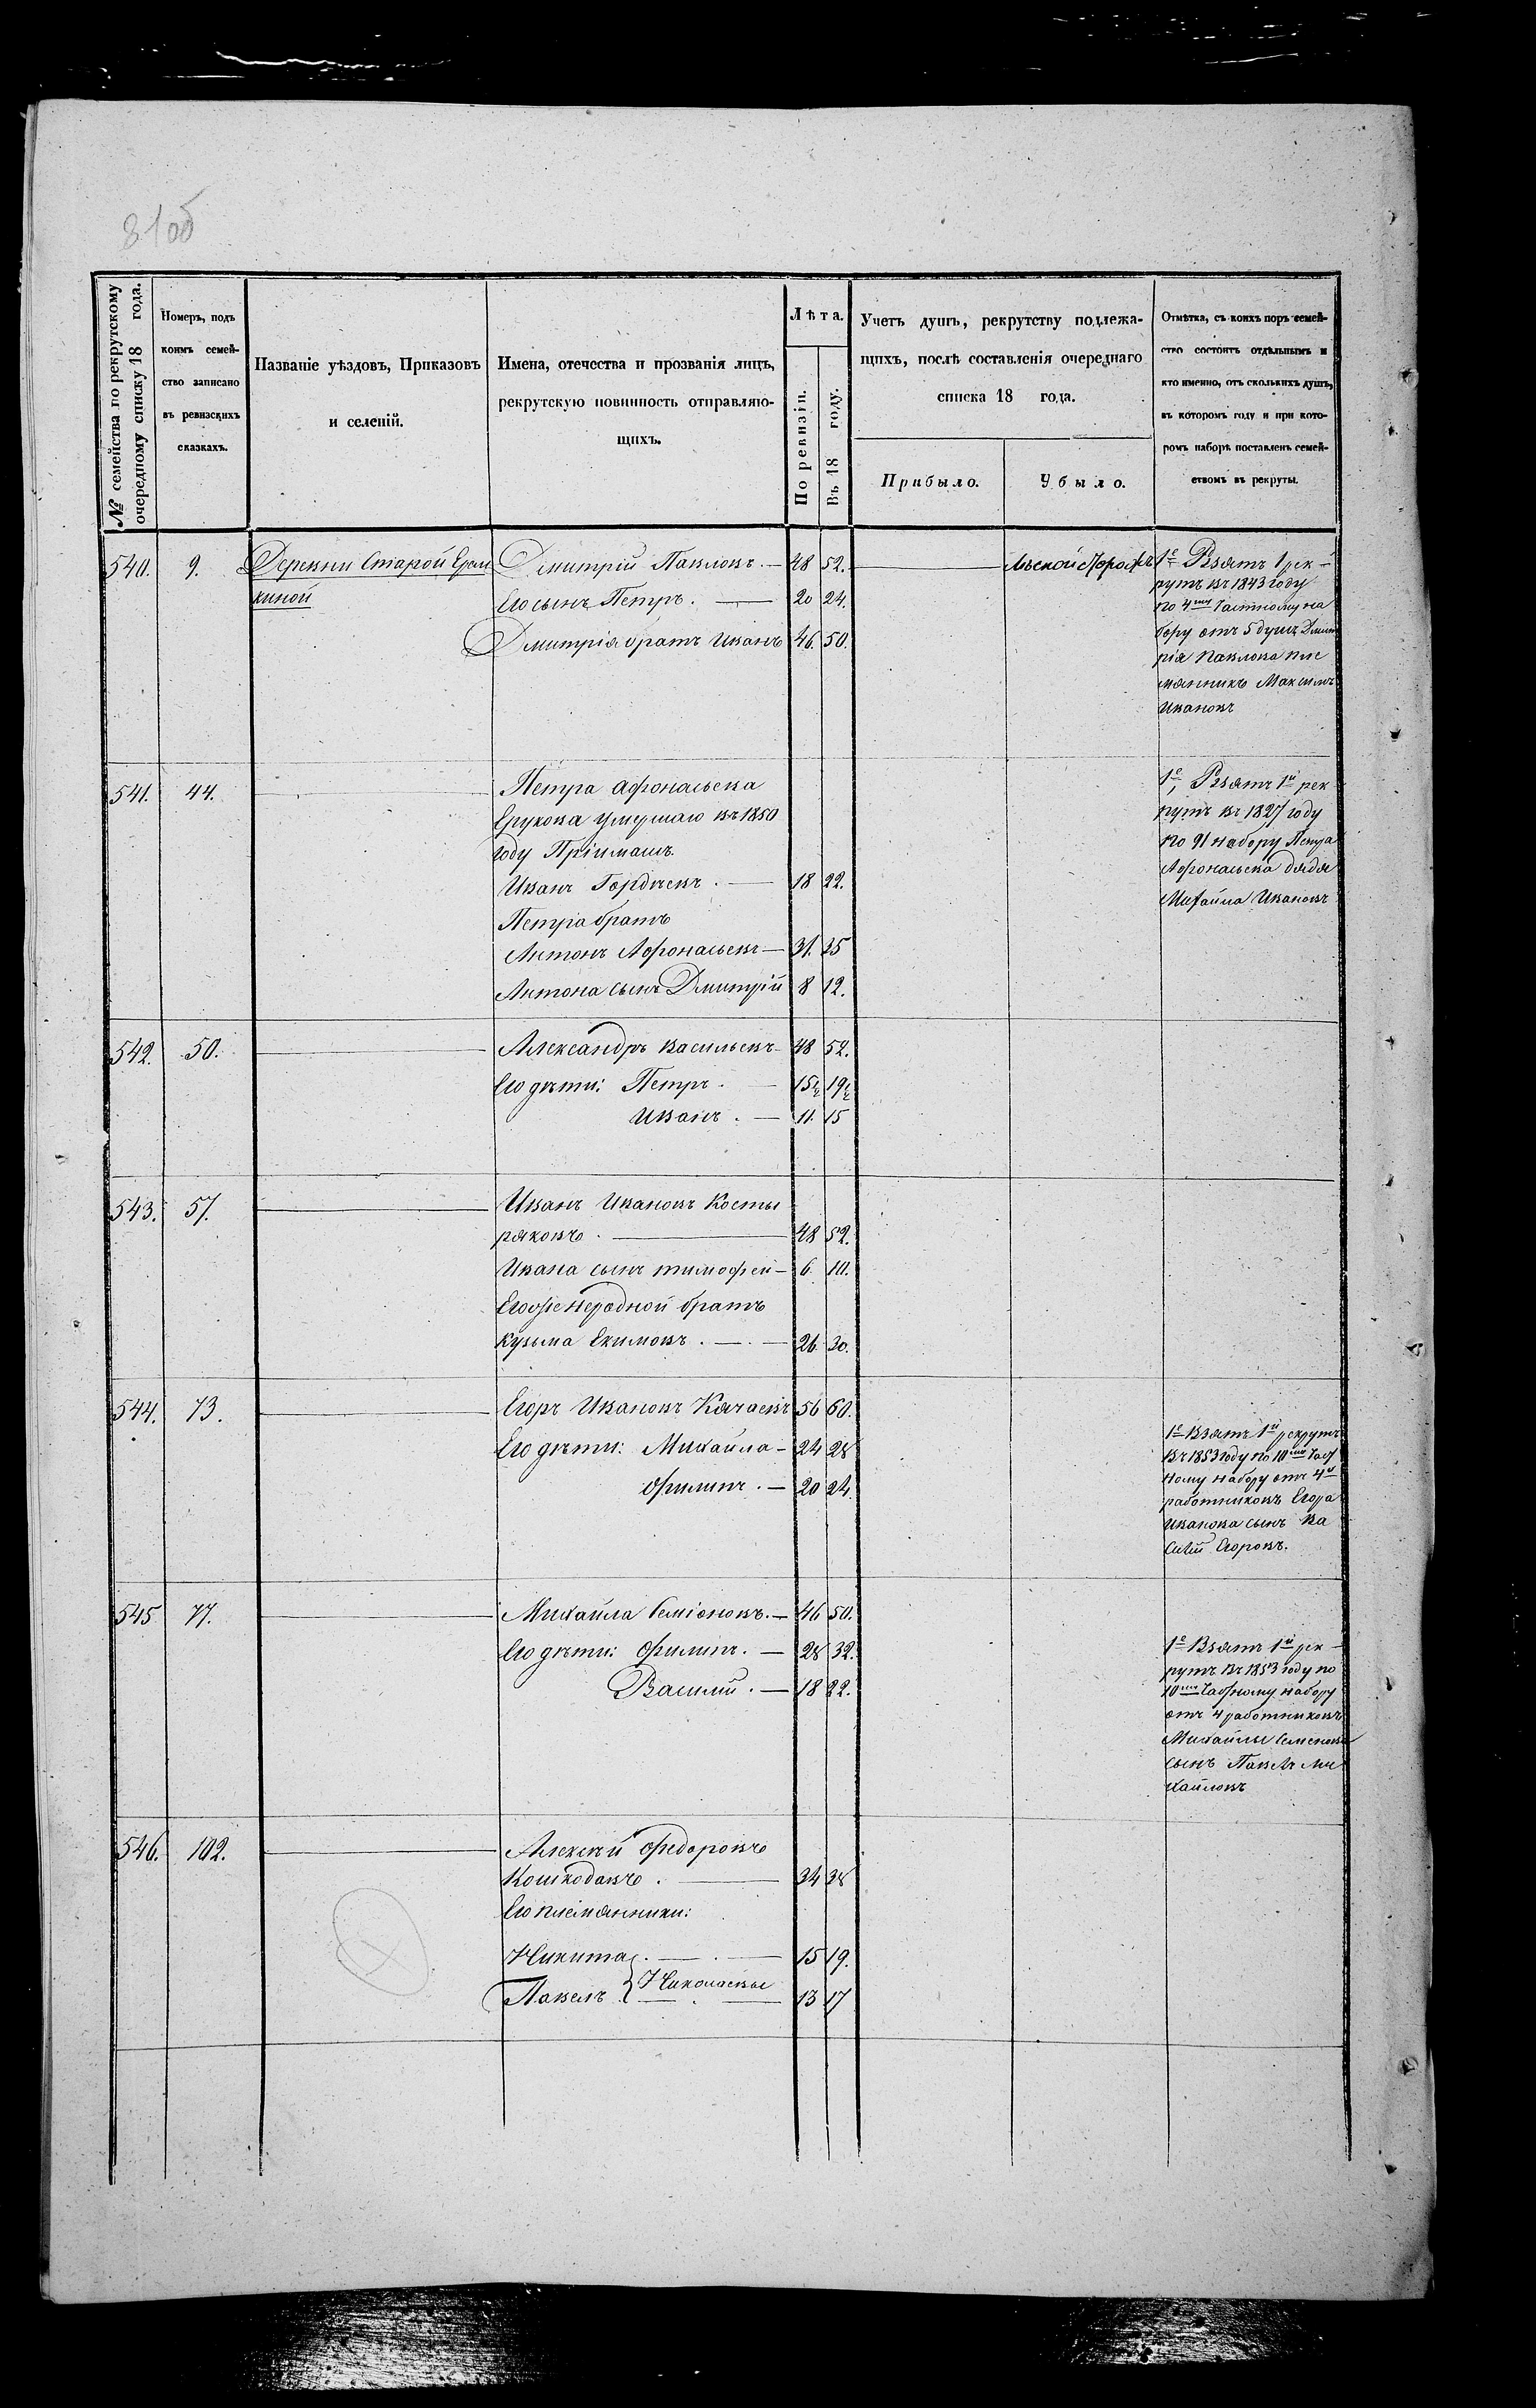 81об
№ семейства по рекрутскому
очередному списку 18 года.
Номеръ, подъ
коимъ семей-
ство записано
въ ревизскихъ
сказкахъ.
Названіе уѣздовъ, Приказовъ
и селеній.
Имена, отечества и прозванія лицъ,
рекрутскую повинность отправляю-
щихъ.
Лѣта.
По ревизіи.
Въ 18 году.
Учетъ душъ, рекрутству подлежа-
щихъ, послѣ составленія очереднаго
списка 18 года.
Прибыло.
Убыло.
Отмѣтка, съ коихъ поръ семей-
ство состоитъ отдѣльнымъ и
кто именно, отъ сколькихъ душъ,
въ которомъ году и при кото-
ромъ наборѣ поставленъ семей-
ствомъ въ рекруты.
540. 9. Деревни Старой Ерем
киной
Дмитрій Павловъ. 48 52.
Его сынъ Петръ. 20 24.
Дмитрія братъ Иванъ 46. 50.
1е Взятъ 1 рек-
рутъ въ 1843 году
по 4му Частному на
бору отъ 5 душъ Дмит
рія Павлова пле
мянникъ Максимъ
Ивановъ
541. 44.
Петра Афонасьева
умершаго въ 1850
году Пріимашъ.
Иванъ Гордѣевъ. 18 22.
Петра братъ
Антонъ Афонасьевъ 31. 35
Антона сынъ Дмитрій 8 12.
1е, Взятъ 1й рек
рутъ въ 1827 году
по 91 набору Петра
Афонасьева дядя
Михайла Ивановъ
542. 50.
Александръ Васильевъ 48 52.
Его дѣти: Петръ. 15½ 19½
Иванъ. 11. 15
543. 57.
Иванъ Ивановъ Косты
ряковъ. 48 52.
Ивана сынъ Тимофей 6. 10.
Его же неродной братъ
Кузьма Екимовъ. 26. 30.
544. 73.
Егоръ Ивановъ Качаевъ 56 60.
Его дѣти: Михайла 24 28
Филипъ. 20 24.
1е Взятъ 1й рекрутъ
въ 1853 году по 10му Час
ному набору отъ 4х
работниковъ Егора
Иванова сынъ Ва
силій Егоровъ.
545 77.
Михайла Семіоновъ. 46 50.
Его дѣти: Филипъ. 28 32.
Василій. 18 22.
1е Взятъ 1й рек-
рутъ въ 1853 году по
10му Часному набору
отъ 4 работниковъ
Михайлы Семенова
сынъ Павелъ Ми
хайловъ
546. 102.
Алексѣй Федоровъ
Кошкодавъ. 34 38
Его племянники:
Никита 15 19.
Павелъ } Николаевы 13 17